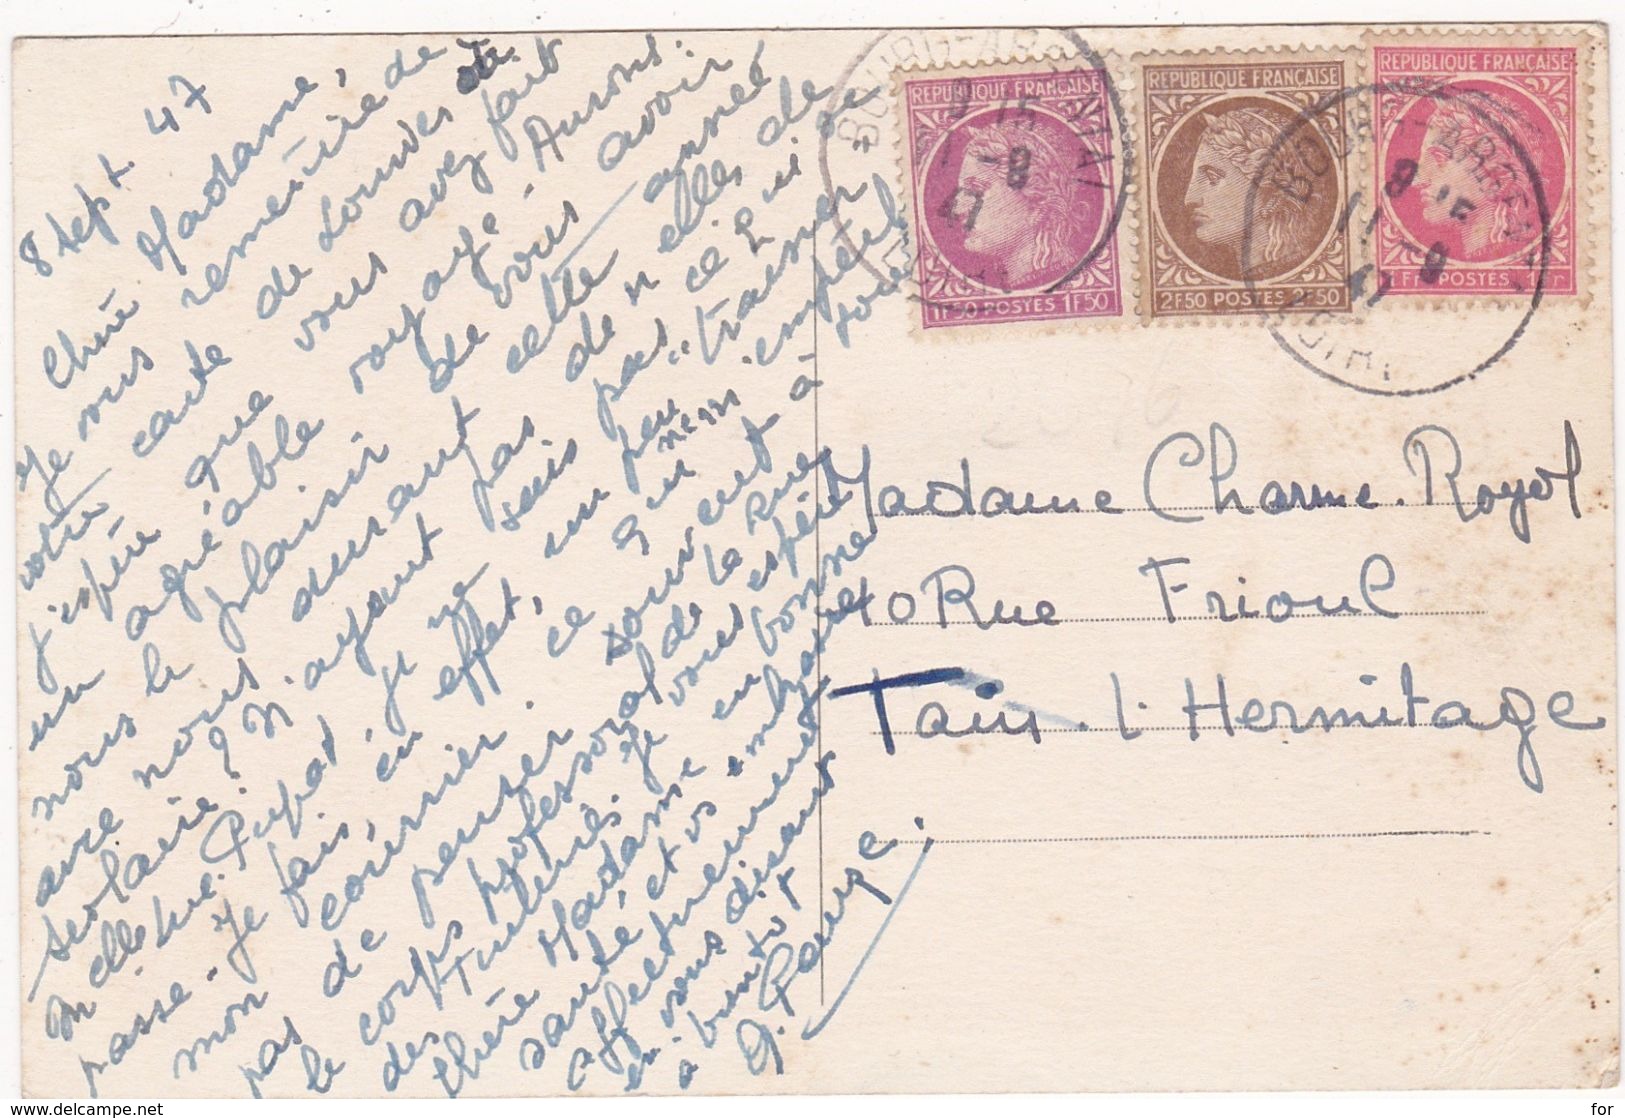 8 Sept. 47
Chère Madame,
Je vous remercie de
votre carte de Lourdes et
j'espère que vous avez fait
un agréable voyage. Aurons
nous le plaisir de vous avoir
avec nous durant cette année
scolaire? N'ayant pas de nelles de
Melle Pupat je ne sais pas ce qui se
passe. Je fais, en effet, un peu "trainer"
mon courrier ce qui ne m'empêche
pas de penser souvent à
le corps professoral de la rue
des Tuileries. Je vous espère
chère Madame en bonne
santé et vs embrasse
affectueusement
en vous disant
à bientôt
REPUBLIQUE FRANÇAISE
1F50 POSTES 1F50
REPUBLIQUE FRANÇAISE
2F50 POSTES 2F50
REPUBLIQUE FRANÇAISE
1F POSTES 1F
BOURG-ARGENTAL
9 15
11-9
47
LOIRE
BOURG-ARGENTAL
9 15
11-9
47
LOIRE
Madame Charme-Royol
40 Rue Frioul
Tain-l'Hermitage
www.delcampe.net
for